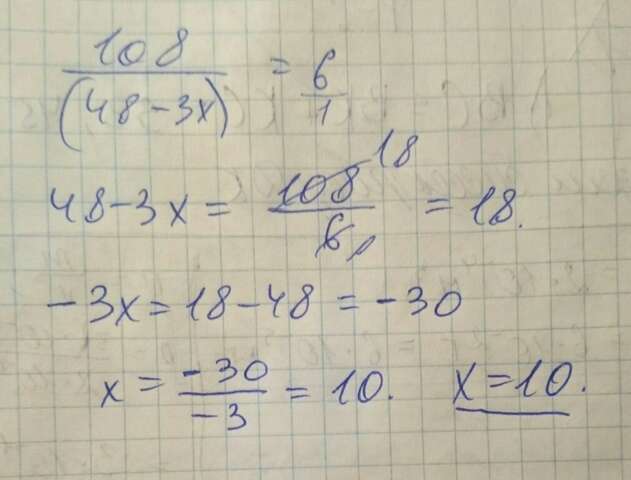 108/(48-3x) = 6/1
48-3x = 108/6 18 1 = 18.
-3x = 18-48 = -30
x = -30/-3 = 10. x=10.